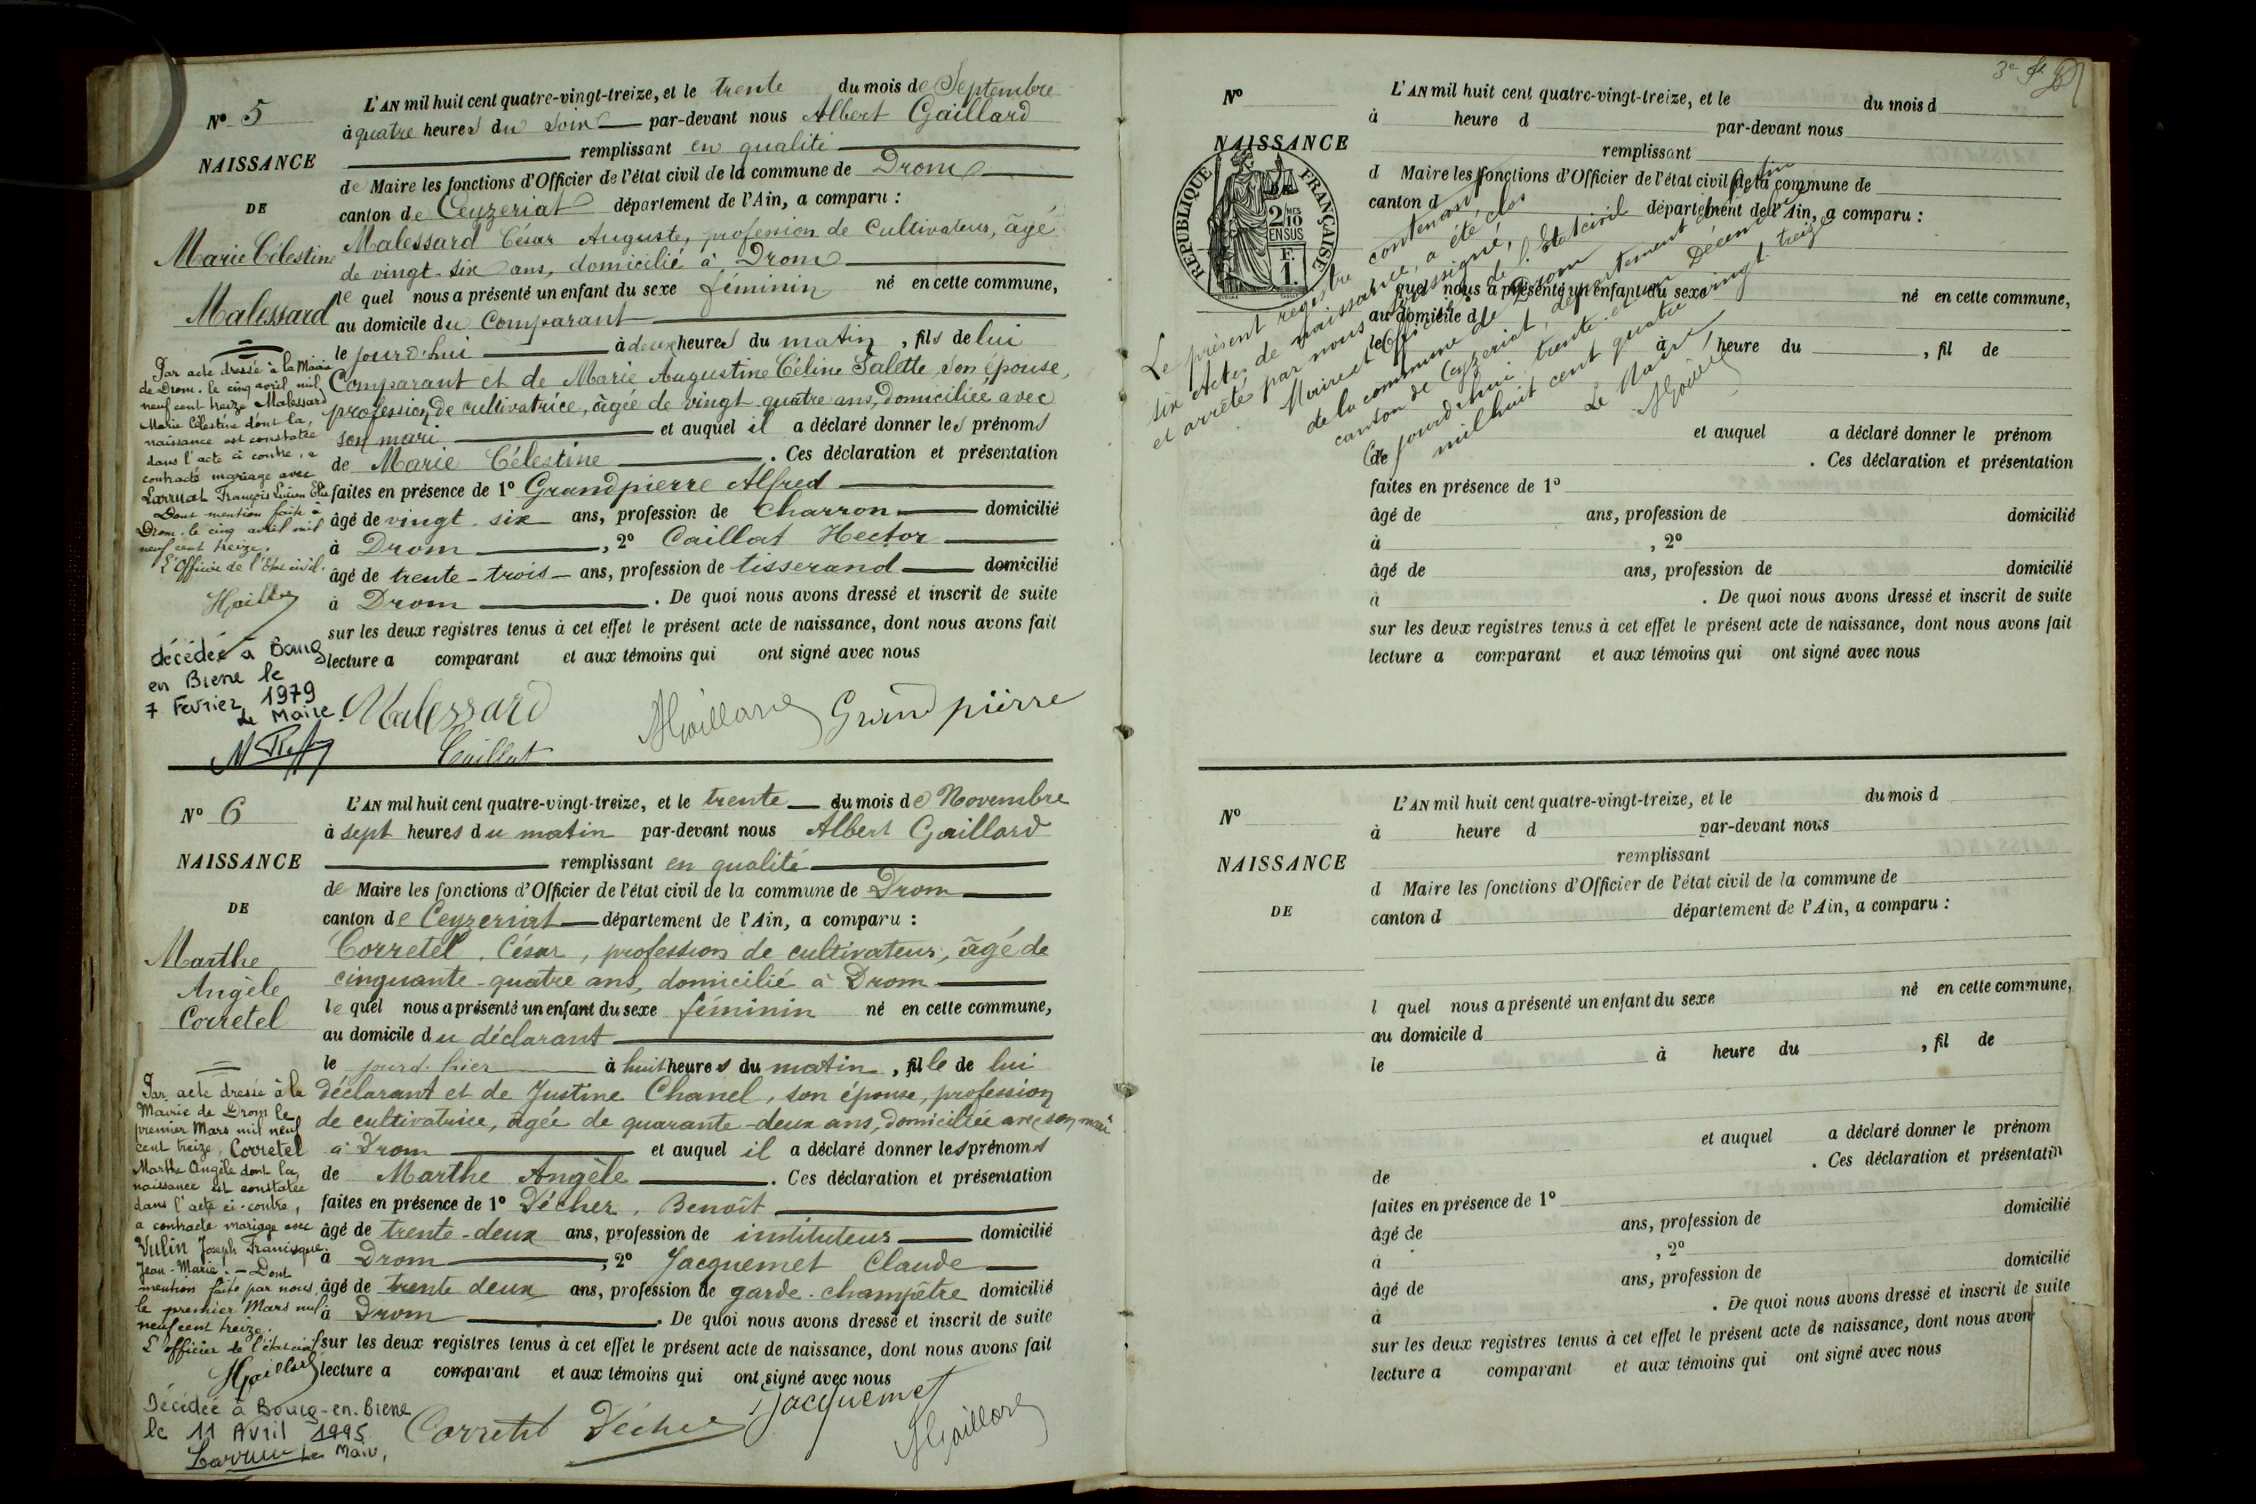 N° 5
NAISSANCE
DE
Marie Célestine
Malessard
Par acte dressé à la Mairie
de Drom, le cinq avril mil
neuf cent treize Malessard
Marie Célestine dont la
naissance est constatée
dans l'acte ci contre, a
contracté mariage avec
Larruat François Lucien Elie
Dont mention faite à
Drom, le cinq avril mil
neuf cent treize.
L'Officier de l'Etat civil.
décédée à Bourg
en Bresse le
7 Fevrier 1979
Le Maire
L'AN mil huit cent quatre-vingt-treize, et le trente du mois de Septembre
à quatre heures du soir par-devant nous Albert Gaillard
remplissant en qualité
de Maire les fonctions d'Officier de l'état civil de la commune de Drom
canton de Ceyzeriat département de l'Ain, a comparu :
Malessard César Auguste, profession de Cultivateur, âgé
de vingt-six ans, domicilié à Drom
le quel nous a présenté un enfant du sexe féminin né en cette commune,
au domicile du Comparant
le jourd'hui à deux heures du matin, fils de lui
Comparant et de Marie Augustine Céline Salette son épouse,
profession de cultivatrice, âgée de vingt-quatre ans, domiciliée avec
son mari et auquel il a déclaré donner les prénoms
de Marie Célestine . Ces déclaration et présentation
faites en présence de 1° Grandpierre Alfred
âgé de vingt-six ans, profession de charron domicilié
à Drom , 2° Caillat Hector
âgé de trente-trois ans, profession de tisserand domicilié
à Drom . De quoi nous avons dressé et inscrit de suite
sur les deux registres tenus à cet effet le présent acte de naissance, dont nous avons fait
lecture a comparant et aux témoins qui ont signé avec nous
Malessard AGaillard Grandpierre
Caillat
N° 6
NAISSANCE
DE
Marthe
Angèle
Corretel
Par acte dressé à la
Mairie de Drom le
premier Mars mil neuf
cent treize, Corretel
Marthe Angèle dont la
naissance est constatée
dans l'acte ci-contre,
a contracté mariage avec
Vulin Joseph Francisque
Jean-Marie. — Dont
mention faite par nous
le premier Mars mil
neuf cent treize.
L'officier de l'état civil
AGaillard
Décédée à Bourg-en-Bresse
le 11 Avril 1995
Le Maire,
L'AN mil huit cent quatre-vingt-treize, et le trente du mois de Novembre
à sept heures du matin par-devant nous Albert Gaillard
remplissant en qualité
de Maire les fonctions d'Officier de l'état civil de la commune de Drom
canton de Ceyzeriat département de l'Ain, a comparu :
Corretel César, profession de cultivateur, âgé de
cinquante-quatre ans, domicilié à Drom
le quel nous a présenté un enfant du sexe féminin né en cette commune,
au domicile du déclarant
le jourd'hier à huit heures du matin, fille de lui
déclarant et de Justine Chanel, son épouse, profession
de cultivatrice, âgée de quarante-deux ans, domiciliée avec son mari
à Drom et auquel il a déclaré donner les prénoms
de Marthe Angèle . Ces déclaration et présentation
faites en présence de 1° Décher, Benoît
âgé de trente-deux ans, profession de instituteur domicilié
à Drom , 2° Jacquemet Claude
âgé de trente deux ans, profession de garde-champêtre domicilié
à Drom . De quoi nous avons dressé et inscrit de suite
sur les deux registres tenus à cet effet le présent acte de naissance, dont nous avons fait
lecture a comparant et aux témoins qui ont signé avec nous
Corretel Décher Jacquemet
AGaillard
N°
NAISSANCE
RÉPUBLIQUE FRANÇAISE
2/10 MES
EN SUS
F.
1.
L'AN mil huit cent quatre-vingt-treize, et le du mois d
à heure d par-devant nous
remplissant
d Maire les fonctions d'Officier de l'état civil de la commune de
canton d département de l'Ain, a comparu :
quel nous a présenté un enfant du sexe né en cette commune,
au domicile d
le à heure du , fil de
et auquel a déclaré donner le prénom
de . Ces déclaration et présentation
faites en présence de 1°
âgé de ans, profession de domicilié
à , 2°
âgé de ans, profession de domicilié
à . De quoi nous avons dressé et inscrit de suite
sur les deux registres tenus à cet effet le présent acte de naissance, dont nous avons fait
lecture a comparant et aux témoins qui ont signé avec nous
Le présent registre contenant
six Actes de naissance, a été clos
et arrêté par nous soussigné,
Maire et Officier de l'Etat civil
de la commune de Drom
canton de Ceyzeriat, département de l'Ain
Ce jourd'hui trente et un Décembre
mil huit cent quatre vingt treize
Le Maire,
AGaillard
N°
NAISSANCE
DE
L'AN mil huit cent quatre-vingt-treize, et le du mois d
à heure d par-devant nous
remplissant
d Maire les fonctions d'Officier de l'état civil de la commune de
canton d département de l'Ain, a comparu :
l quel nous a présenté un enfant du sexe né en cette commune,
au domicile d
le à heure du , fil de
et auquel a déclaré donner le prénom
de . Ces déclaration et présentatin
faites en présence de 1°
âgé de ans, profession de domicilié
à , 2°
âgé de ans, profession de domicilié
à . De quoi nous avons dressé et inscrit de suite
sur les deux registres tenus à cet effet le présent acte de naissance, dont nous avon
lecture a comparant et aux témoins qui ont signé avec nous